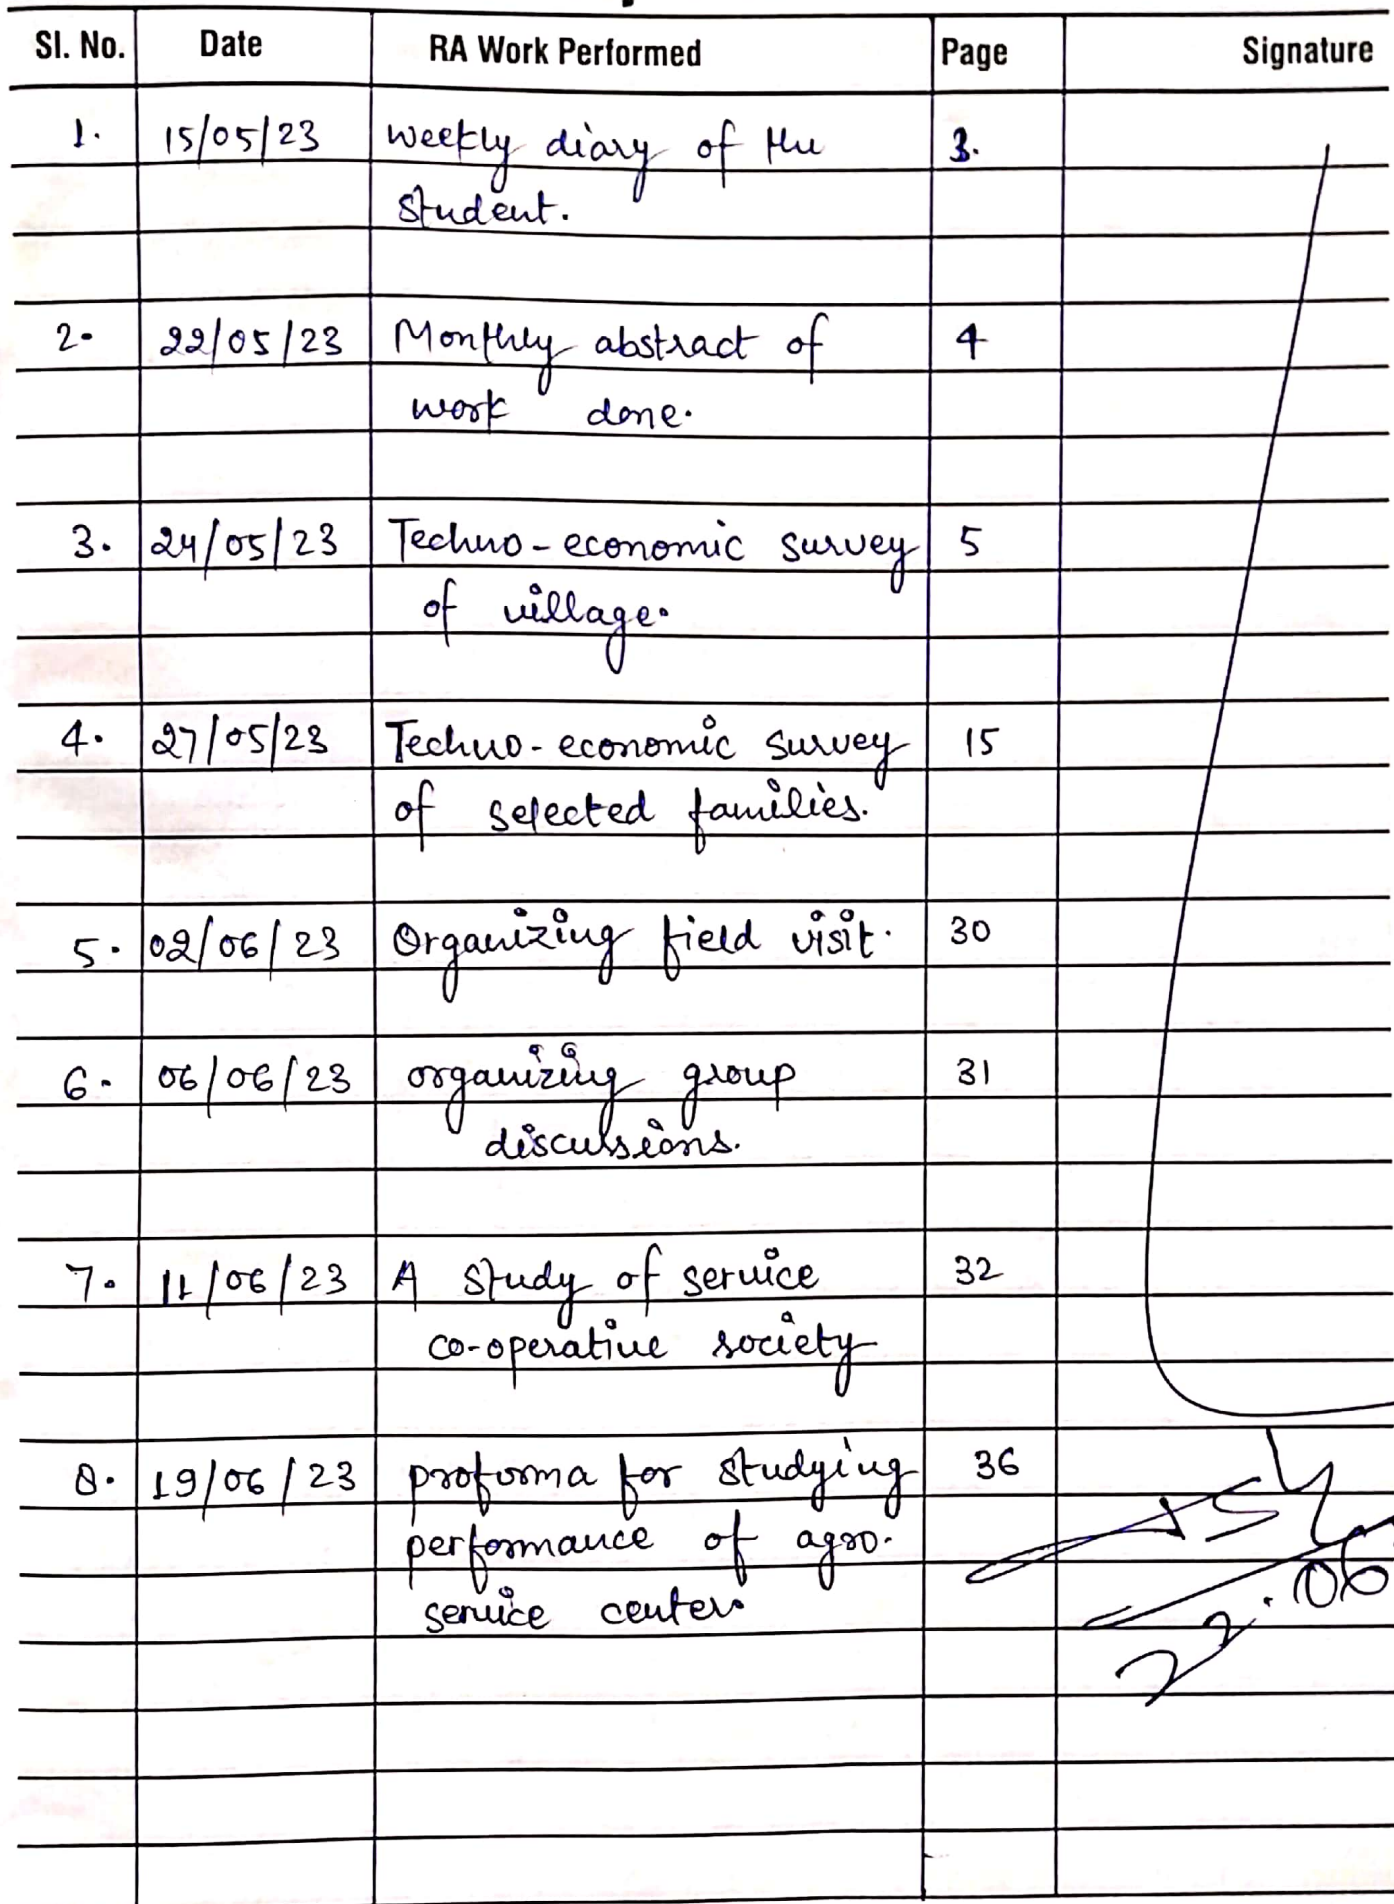 Sl. No. Date RA Work Performed Page Signature
1. 15/05/23 weekly diary of the 3.
student.
2. 22/05/23 Monthly abstract of 4
work done.
3. 24/05/23 Techno-economic survey 5
of village.
4. 27/05/23 Techno-economic survey 15
of selected families.
5. 02/06/23 Organizing field visit. 30
6. 06/06/23 organizing group 31
discussions.
7. 11/06/23 A study of service 32
co-operative society
8. 19/06/23 proforma for studying 36
performance of agro.
service center.
22.06